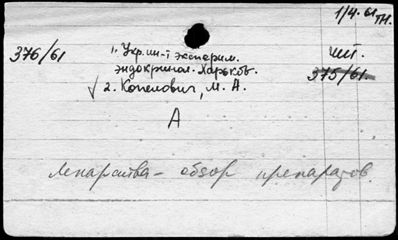 1/4.61
тн.
376/61
1. Укр. ин-т эксперим.
эндокринол. Харьков.
шт.
375/61.
√ 2. Копелович, М. А.
А
Лекарства - обзор препаратов.